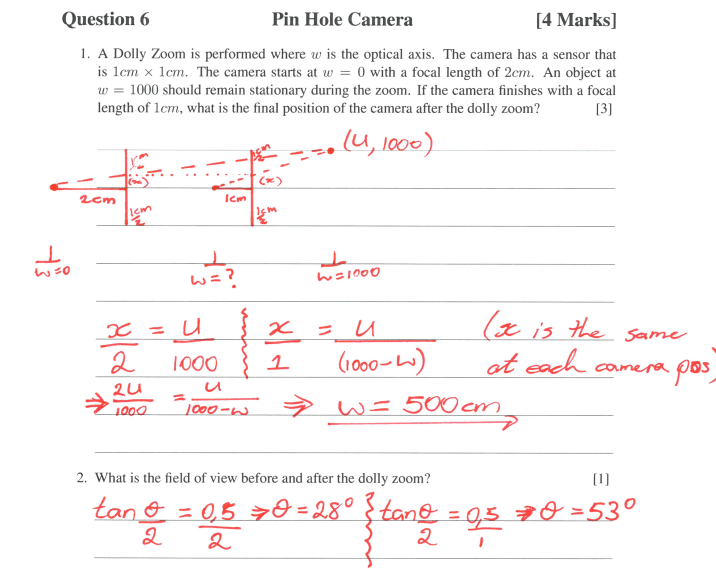 Question 6 Pin Hole Camera [4 Marks]
1. A Dolly Zoom is performed where w is the optical axis. The camera has a sensor that
is 1cm × 1cm. The camera starts at w = 0 with a focal length of 2cm. An object at
w = 1000 should remain stationary during the zoom. If the camera finishes with a focal
length of 1cm, what is the final position of the camera after the dolly zoom? [3]
(u, 1000)
½cm ½cm
(x) (x)
2cm 1cm
1cm/2 1cm/2
w=0 w=? w=1000
x/2 = u/1000 x/1 = u/(1000-w) (x is the same
at each camera pos)
⇒ 2u/1000 = u/1000-w ⇒ w = 500cm
2. What is the field of view before and after the dolly zoom? [1]
tan θ/2 = 0,5/2 ⇒ θ = 28° tan θ/2 = 0,5/1 ⇒ θ = 53°